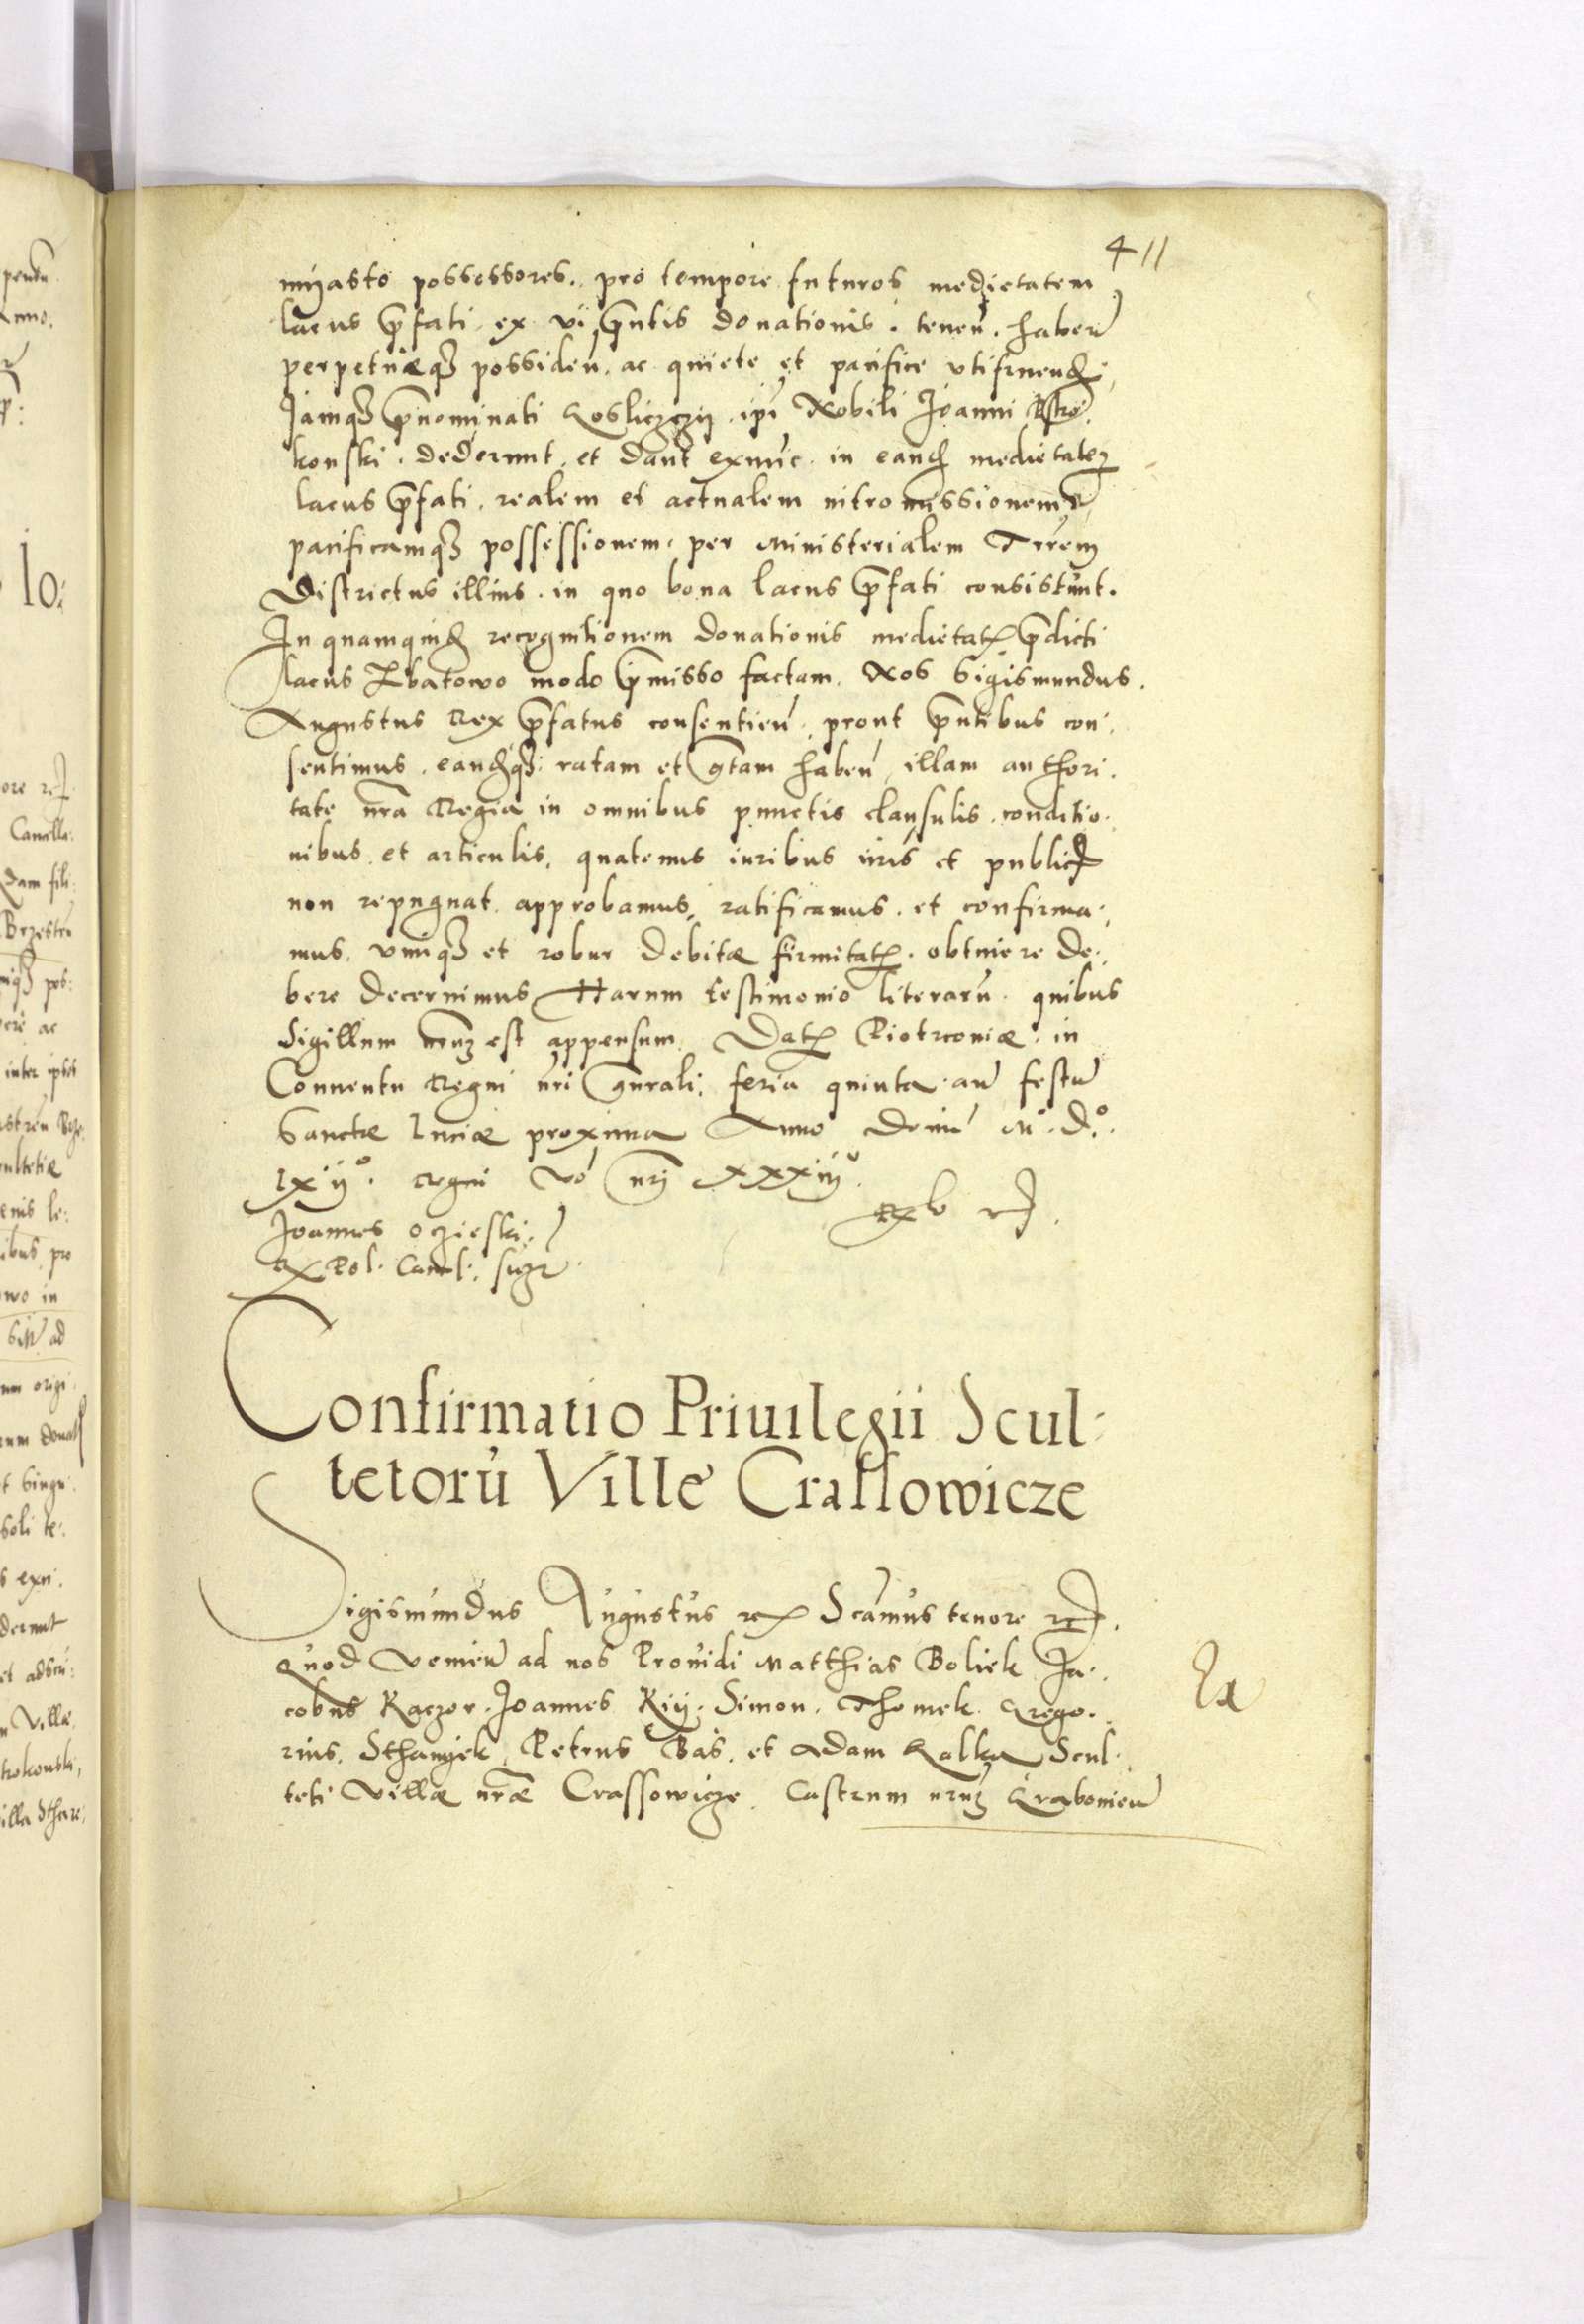 411
mijasto possessores. pro tempore futuros medietatem
lacus p̃fati. ex vi p̃ntis donationis. teneñ. habeñ
perpetuæq₃ possideñ. ac quiete et pacifice vtifrueñd.
Jamq₃ p̃nominati Kosliczczij. ip̃i Nobili Joanni Ostro-
konski. dederunt. et dant exnunc. in eand medietatẽ
lacus p̃fati. realem et actualem intromissionem
pacificamq₃ possessionem. per Ministerialem Trr̃em
Districtus illius. in quo bona lacus p̃fati consistunt.
In quamquid recognitionem donationis medietat p̃dicti
lacus Zbatowo modo p̃misso factam. Nos Sigismundus.
Augustus Rex p̃fatus consentieñ. prout p̃ntibus con.
sentimus. eandq₃. ratam et g̃tam habeñ, illam authori.
tate nr̃a Regia in omnibus punctis clausulis. conditio.
nibus. et articulis. quatenus iuribus nr̃is et public
non repugnat. approbamus, ratificamus. et confirma.
mus. vimq₃ et robur debitæ firmitat. obtinere de.
bere decernimus Harum testimonio literarũ. quibus
Sigillum nr̃m est appensum. Dat Piotrconiæ. in
Conuentu Regni nr̃i gñrali. feria quinta. añ festũ
Sanctæ luciæ proxima Anno Domĩ M.° D.°
lxij°. Regni vo nr̃i xxxiij°
Joannes Oczieski.
R Pol. Canc l. sugr̃
Confirmatio Priuilegii Scul.
tetorũ Ville Crassowicze
Sigismundus Augustus rex Scamus tenore
Quod venieñ ad nos Prouidi Matthias Boliek Ja.
cobus Kaczor. Joannes Kij. Simon. Thomek. Grego.
rius. Sthanijek. Petrus Bas. et Adam Kalka Scul.
teti villæ nr̃æ Crassowicze. Castrum nr̃m Krabonieñ